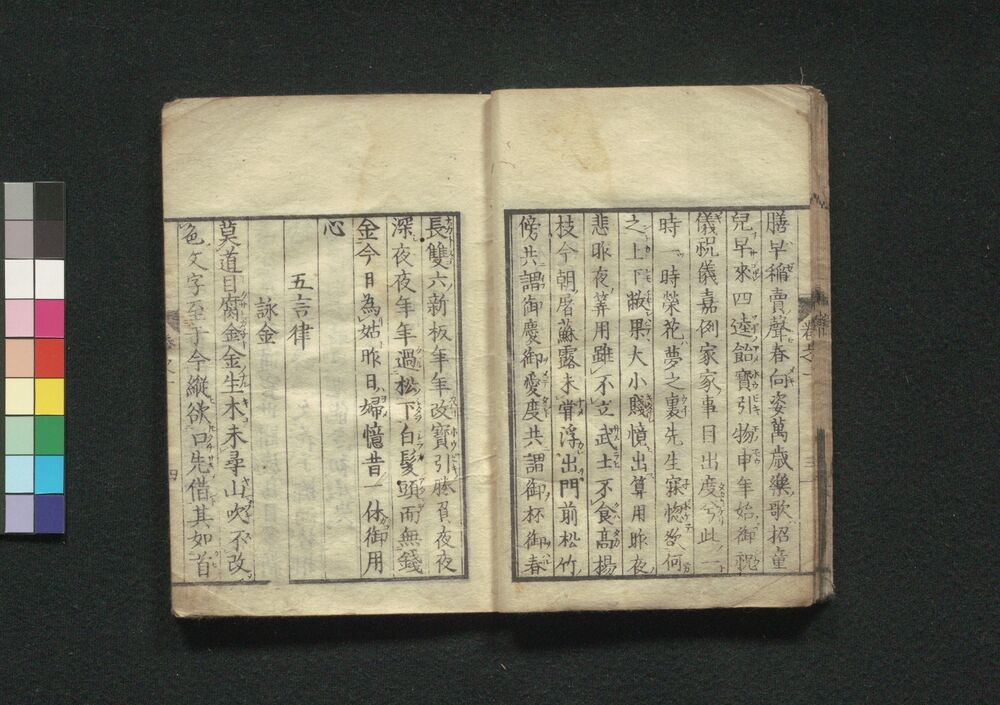 膳早稲賣聲春向姿萬歳樂歌招童
兒早來四遠飴寶引物申年始御祝
儀祝儀嘉例家家事目出度兮此一
時一時榮花夢之裏先生寐惚欲何
之上下敝果大小賤憤出算用昨夜
悲昨夜筭用雖不立武士不食高楊
枝今朝屠蘇露未甞浮出門前松竹
傍共謂御慶御愛度共謂御杯御春
長雙六新板年年改寶引勝負夜夜
深夜夜年年過松下白髮頭而無錢
金今日為姑昨日婦憶昔一休御用
心
五言律
詠金
莫道目腐金金生木未尋山吹不改
色文字至于今縦欲口先借其如首